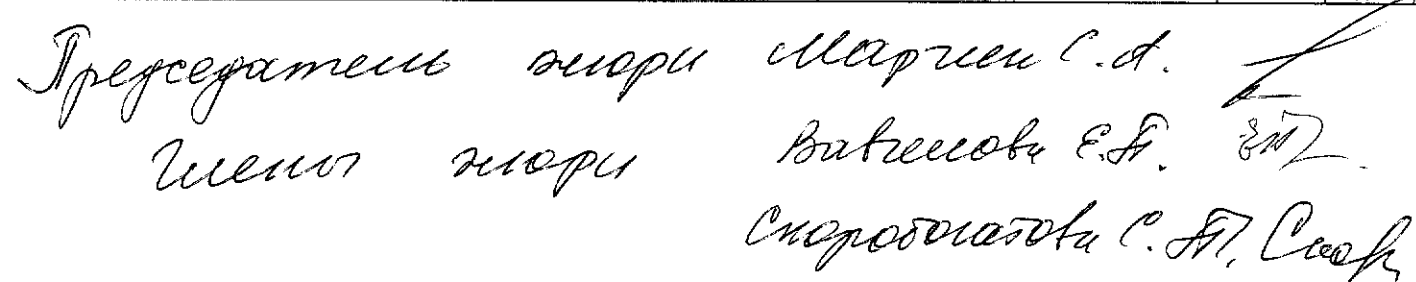 Председатель жюри Марчен С.А.
Члены жюри Вавилова Е.П.
Скоробогатова С.П. Скор